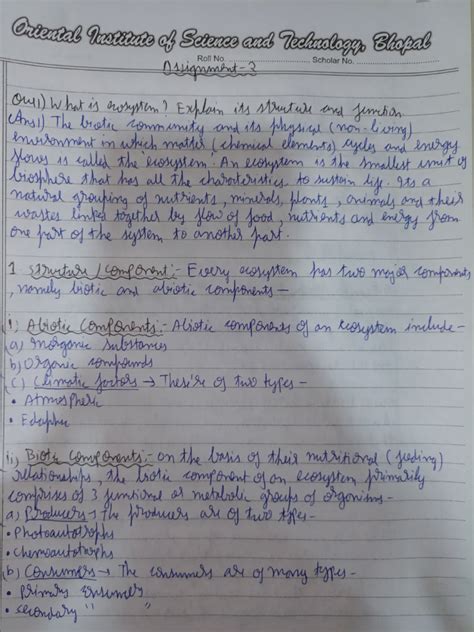 Oriental Institute of Science and Technology, Bhopal
Roll No. Scholar No.
Assignment-3
Que1) What is ecosystem? Explain its structure and function.
(Ans1) The biotic community and its physical (non-living)
environment in which matter (chemical elements) cycles and energy
flows is called the ecosystem. An ecosystem is the smallest unit of
biosphere that has all the charcteristics to sustain life. Its a
natural grouping of nutrients, minerals, plants, animals and their
wastes linked together by flow of food, nutrients and energy from
one part of the system to another part.
1 Structure/Component:- Every ecosystem has two major components
, namely biotic and abiotic components -
i) Abiotic Components:- Abiotic components of an ecosystem include -
a) Inorganic substances
b) Organic compounds
c) Climatic factors → These're of two types -
• Atmospheric
• Edaphic
ii) Biotic Components:- on the basis of their nutritional (feeding)
relationships, the biotic component of an ecosystem primarily
comprises of 3 functional or metabolic groups of organisms -
a) Producers → The producers are of two types -
• Photoautotrophs
• Chemoautotrophs
(b) Consumers → The consumers are of many types -
• Primary consumers
• secondary " "